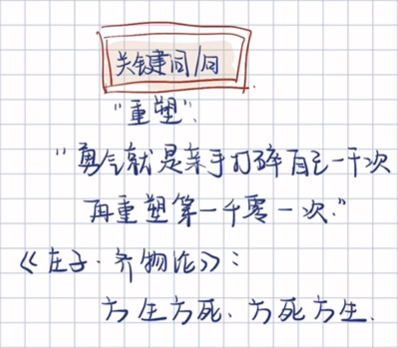 关键词/句
"重塑":
"勇气就是亲手打碎自己一千次
再重塑第一千零一次."
《庄子·齐物论》:
方生方死、方死方生.